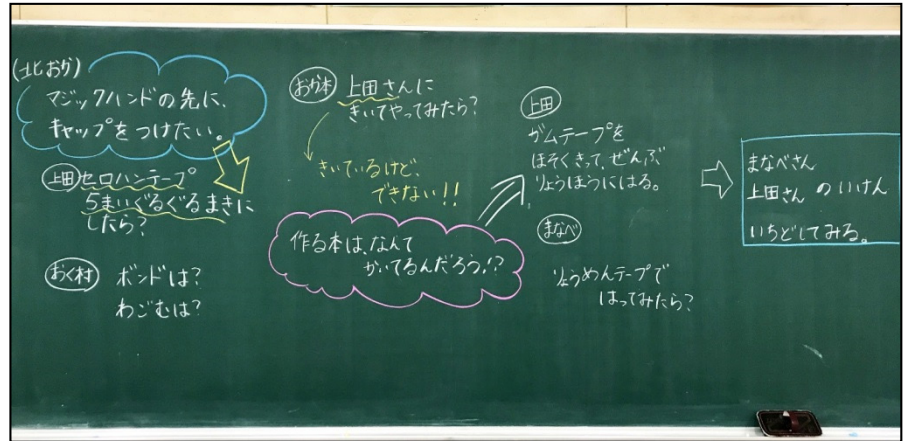 (北おか)
マジックハンドの先に、
キャップをつけたい。
上田 セロハンテープ
5まいぐるぐるまきに
したら?
おく村 ボンドは?
わごむは?
おか本 上田さんに
きいてやってみたら?
きいているけど、
できない!!
作る本は、なんて
かいてるんだろう!?
上田
ガムテープを
ほそくきって、ぜんぶ
りょうほうにはる。
まなべ
りょうめんテープで
はってみたら?
まなべさん
上田さん のいけん
いちどしてみる。